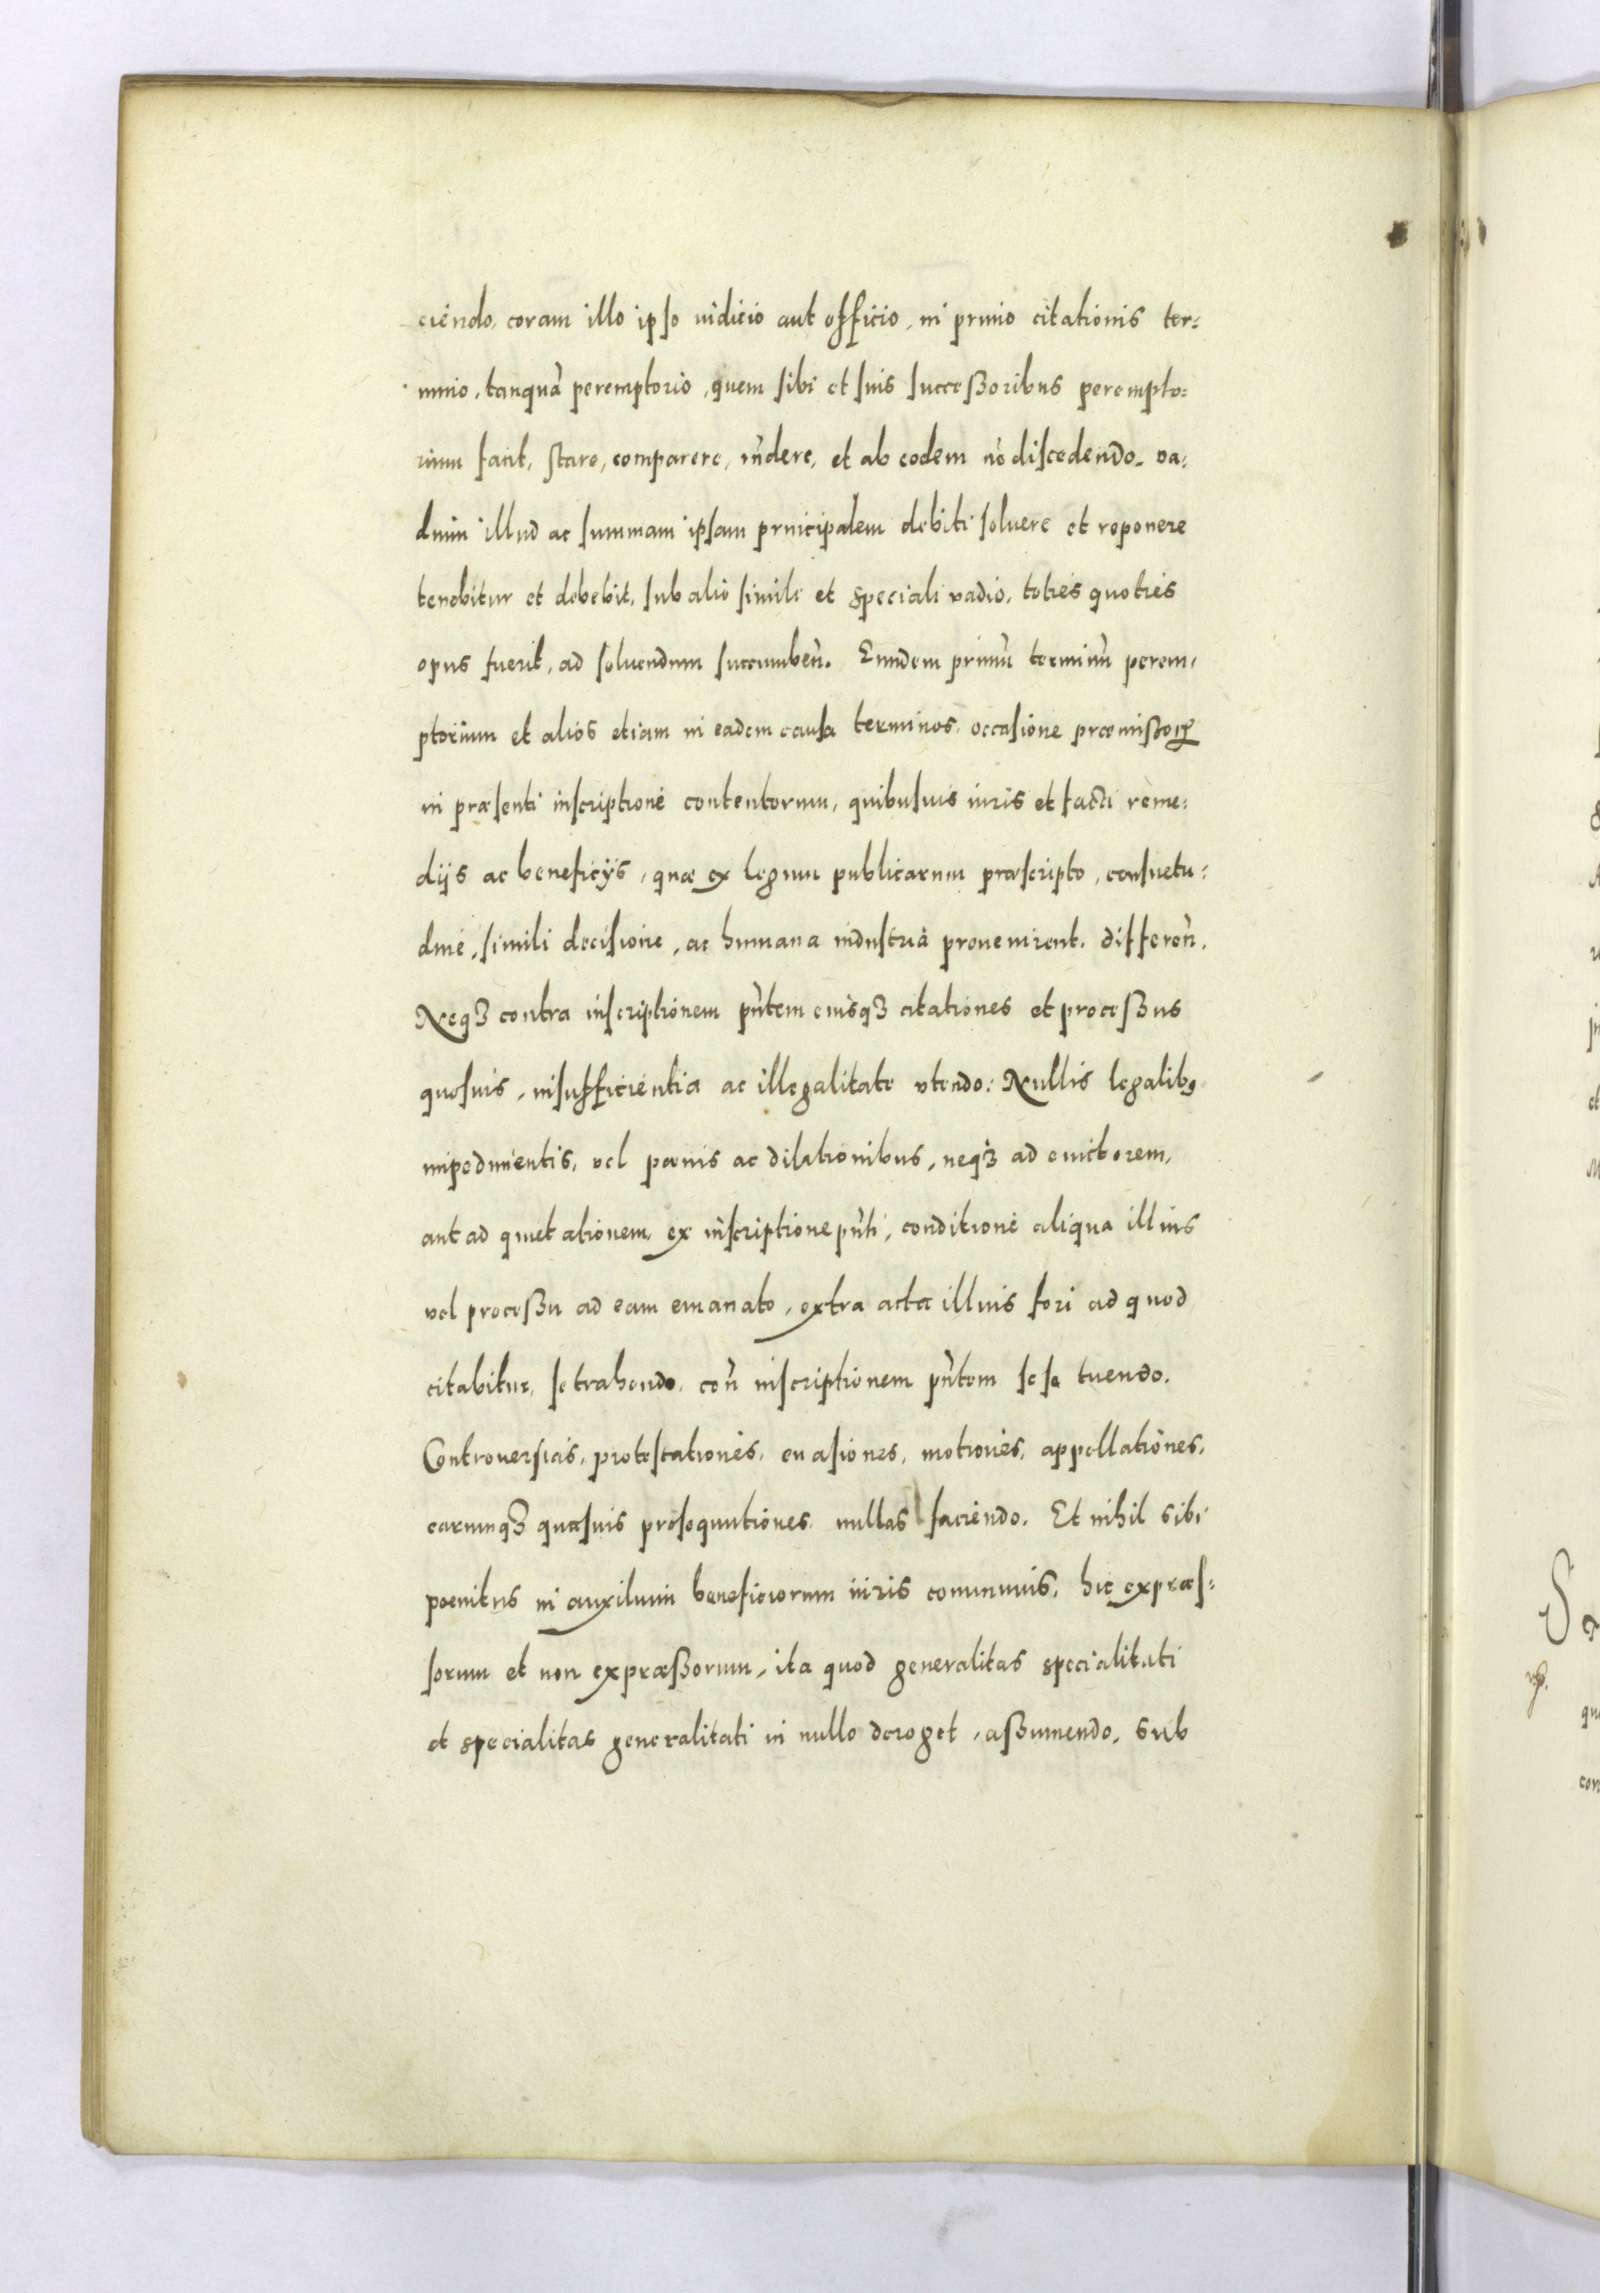 ciendo, coram illo ipso iudicio aut officio, in primo citationis ter=
mino, tanquā peremptorio, quem sibi et suis successoribus perempto=
rium facit, stare, comparere, rn̄dere, et ab eodem nō discedendo, va=
dium illud ac summam ipsam principalem debiti soluere et reponere
tenebitur et debebit, sub alio simili et speciali vadio, toties quoties
opus fuerit, ad soluendum succumben̄. Eundem primū terminū perem,
ptorium et alios etiam in eadem causa terminos, occasione præmissoꝝ
in præsenti inscriptione contentorum, quibusuis iuris et facti reme=
dijs ac beneficijs, quæ ex legum publicarum præscripto, consuetu=
dine, simili decisione, ac humana industria prouenirent, differen̄.
Neqꝫ contra inscriptionem pn̄tem eiusqꝫ citationes et processus
quosuis, insufficientia ac illegalitate vtendo: Nullis legalibꝰ
impedimentis, vel pœnis ac dilationibus, neqꝫ ad euictorem,
aut ad quietationem, ex inscriptione pn̄ti, conditione aliqua illius
vel processu ad eam emanato, extra acta illius fori ad quod
citabitur, se trahendo, con̄ inscriptionem pn̄tem sese tuendo.
Controuersias, protestationes, euasiones, motiones, appellationes,
earumqꝫ quasuis prosequutiones nullas faciendo. Et nihil sibi
poenitus in auxilium beneficiorum iuris communis, hic expræs=
sorum et non expræssorum, ita quod generalitas specialitati
et specialitas generalitati in nullo deroget, assumendo, sub